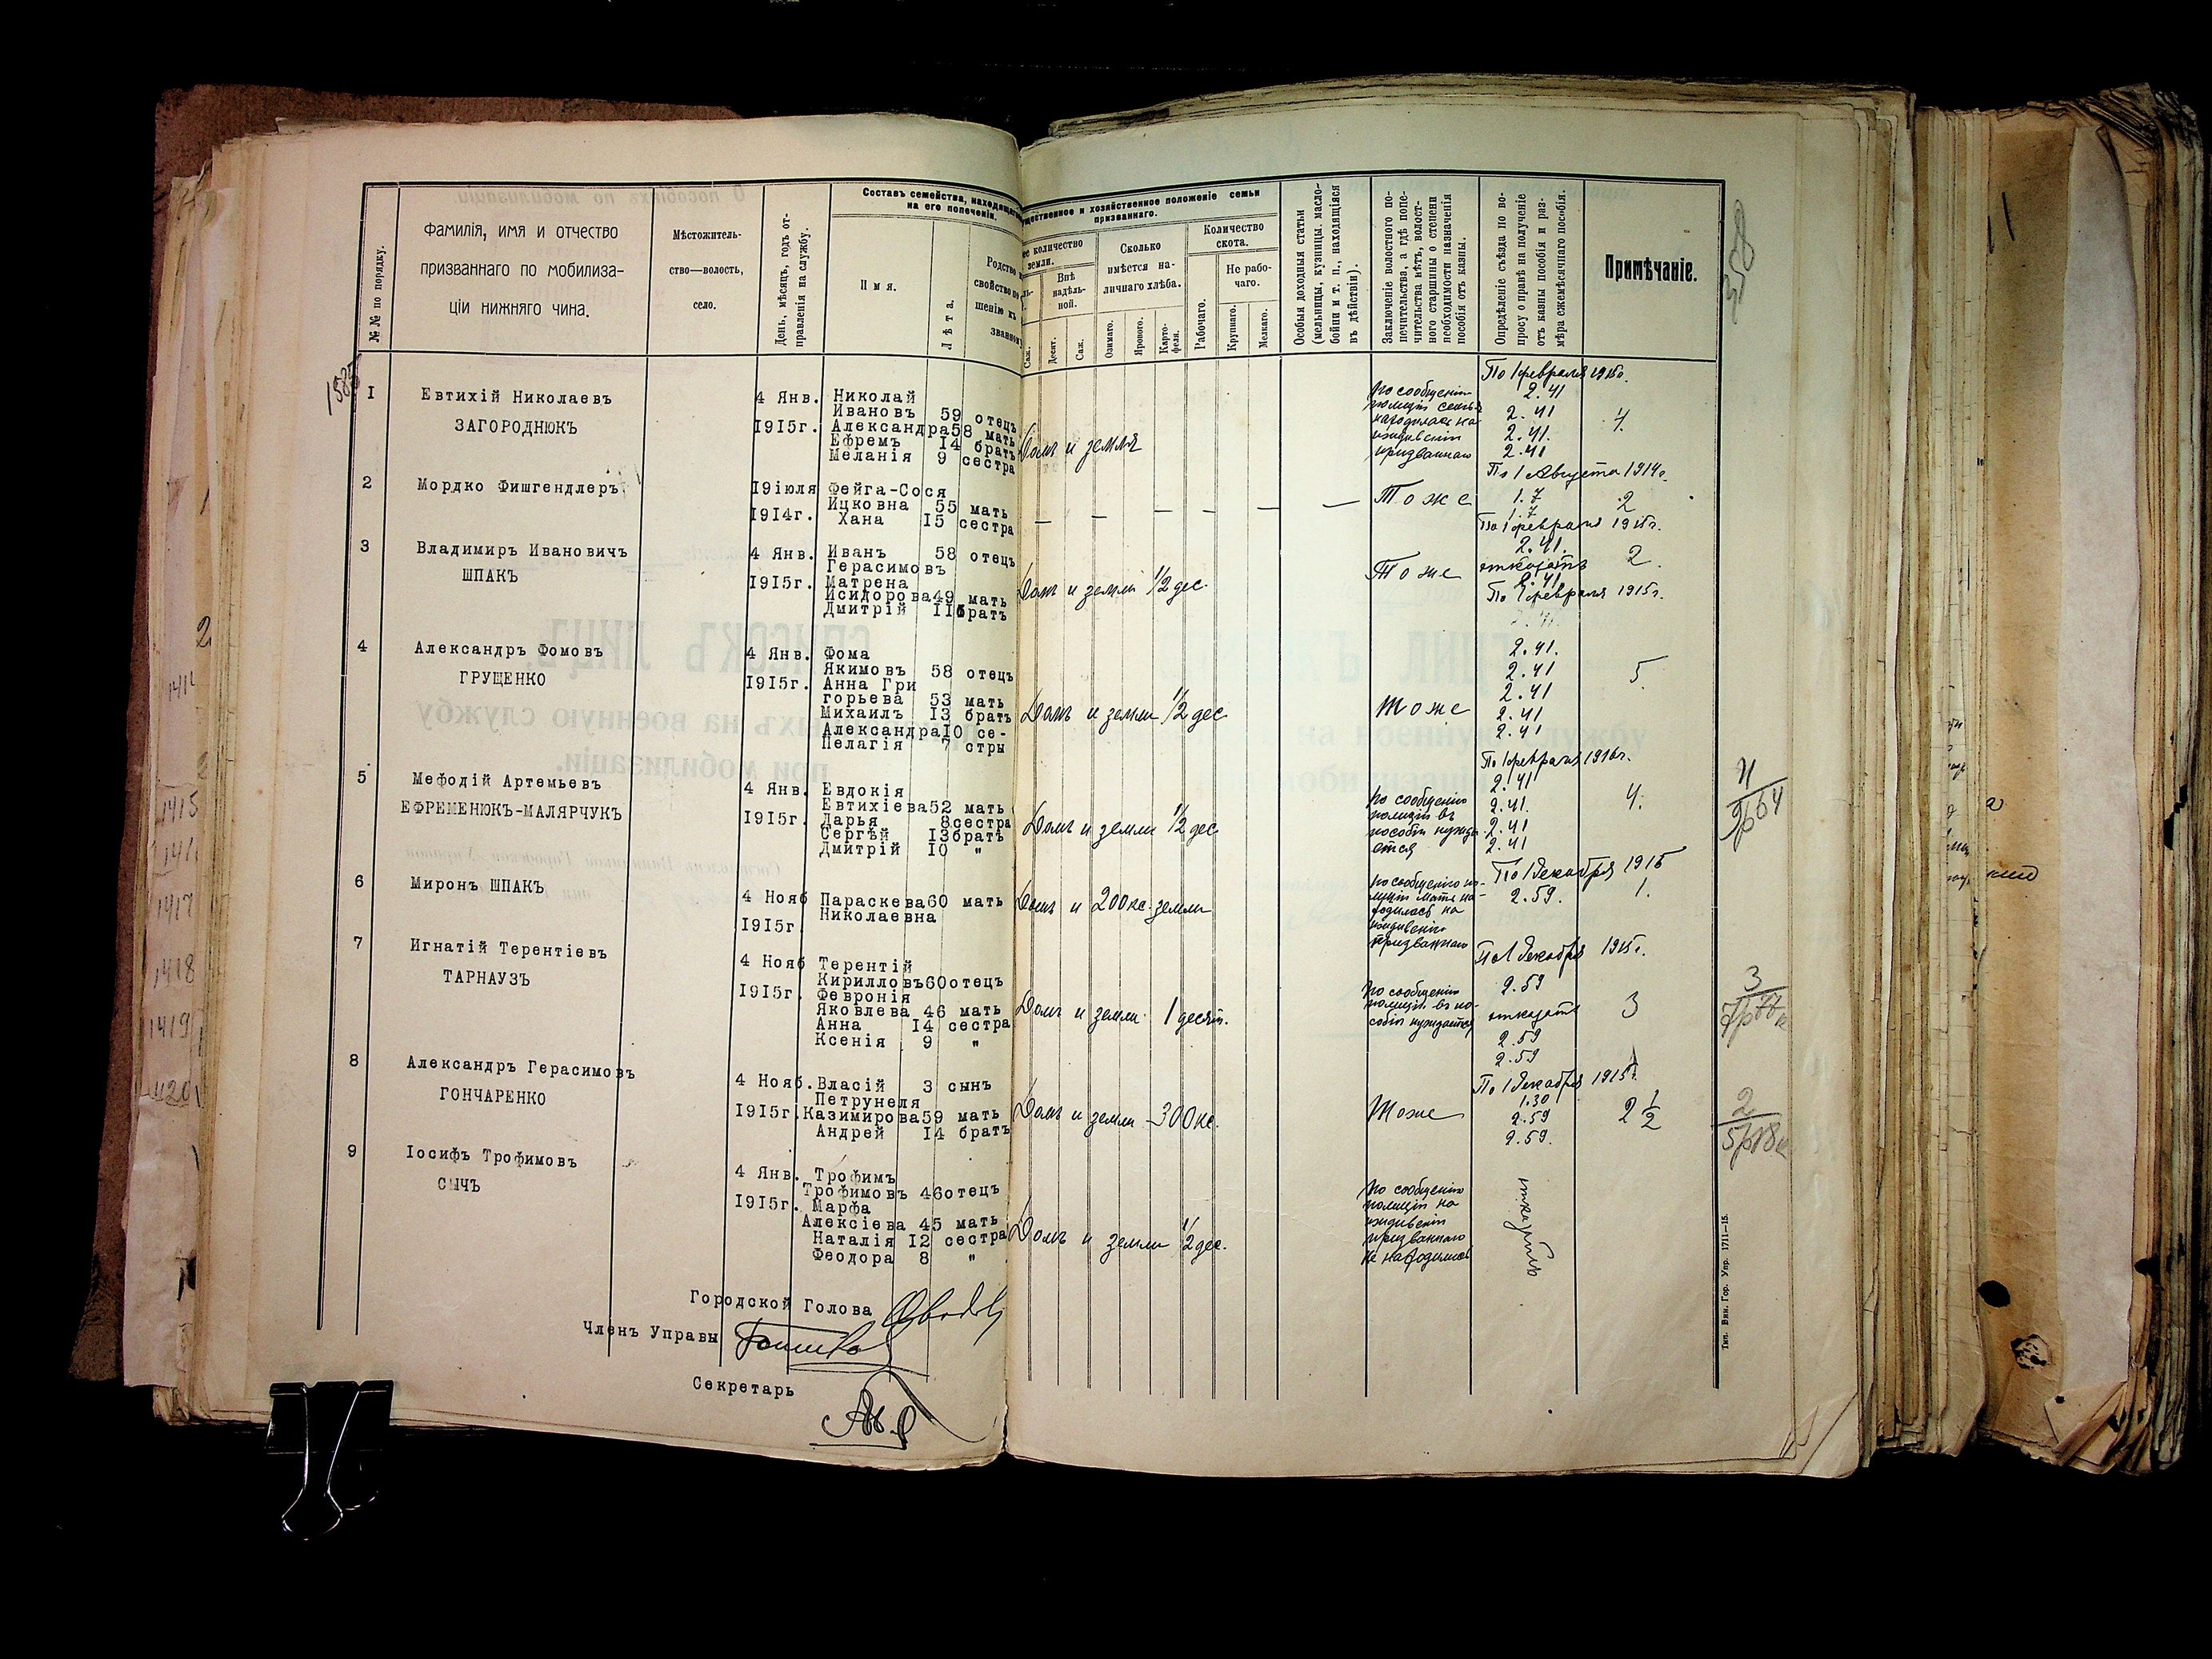 №№ по порядку.
Фамилія, имя и отчество
призваннаго по мобилиза-
ціи нижняго чина.
Мѣстожитель-
ство—волость,
село.
День, мѣсяцъ, годъ от-
правленія на службу.
Составъ семейства, находящаго
на его попеченіи.
Имя.
Лѣта.
Родство
свойство по
шенію къ
званному
ущественное и хозяйственное положеніе семьи
призваннаго.
ее количество
земли.
Внѣ
надѣль-
ной.
Саж.
Десят.
Саж.
Сколько
имѣется на-
личнаго хлѣба.
Озимаго.
Ярового.
Карто-
феля.
Количество
скота.
Рабочаго.
Не рабо-
чаго.
Крупнаго.
Мелкаго.
Особыя доходныя статьи
(мельницы, кузницы. масло-
бойни и т. п., находящіяся
въ дѣйствіи).
Заключеніе волостного по-
печительства, а гдѣ попе-
чительства нѣтъ, волост-
ного старшины о степени
необходимости назначенія
пособія отъ казны.
Опредѣленіе съѣзда по во-
просу о правѣ на полученіе
отъ казны пособія и раз-
мѣра ежемѣсячнаго пособія.
Примѣчаніе.
358
1
Евтихій Николаевъ
ЗАГОРОДНЮКЪ
4 Янв.
1915г.
Николай
Ивановъ 59 отецъ
Александра 58 мать
Ефремъ 14 братъ
Меланія 9 сестра
Домъ и земля
По сообщенію
полиціи семья
находилась на
иждивеніи
призваннаго
По 1 февраля 1915г.
2.41
2.41
2.41.
2.41
4.
2
Мордко Фишгендлеръ
19 іюля
1914г.
Фейга-Сося
Ицковна 55 мать
Хана 15 сестра
— — — — — — —
Тоже
По 1 Августа 1914г.
1.7
1.7
2
3
Владимиръ Ивановичъ
ШПАКЪ
4 Янв.
1915г.
Иванъ 58 отецъ
Герасимовъ
Матрена
Исидорова 49 мать
Дмитрій 11 братъ
Домъ и земли 1/2 дес.
Тоже
По 1 февраля 1915г.
2.41.
отказать
2.41
2.
4
Александръ Фомовъ
ГРУЩЕНКО
4 Янв.
1915г.
Фома
Якимовъ 58 отецъ
Анна Гри
горьева 53 мать
Михаилъ 13 братъ
Александра 10 се-
Пелагія 7 стры
Домъ и земли 1/2 дес
Тоже
По 1 февраля 1915г.
2.41.
2.41
2.41
2.41
2.41
5.
5
Мефодій Артемьевъ
ЕФРЕМЕНЮКЪ-МАЛЯРЧУКЪ
4 Янв.
1915г.
Евдокія
Евтихіева 52 мать
Дарья 8 сестра
Сергѣй 13 братъ
Дмитрій 10 "
Домъ и земли 1/2 дес
По сообщенію
полиціи въ
пособіи нужда
ется
По 1 февраля 1916г.
2.41
2.41.
2.41
2.41
4.
4
9р64
6
Миронъ ШПАКЪ
4 Нояб
1915г.
Параскева 60 мать
Николаевна
Домъ и 200 кс. земли
По сообщенію по-
лиціи мать на-
ходилась на
иждивеніи
призваннаго
По 1 декабря 1915
2.59.
1.
7
Игнатій Терентіевъ
ТАРНАУЗЪ
4 Нояб
1915г.
Терентій
Кирилловъ 60 отецъ
Февронія
Яковлева 46 мать
Анна 14 сестра
Ксенія 9 "
Домъ и земли 1 десят.
По сообщенію
полиціи въ по-
собіи нуждается
По 1 декабря 1915г.
2.59
отказать
2.59
2.59
3
3
8
Александръ Герасимовъ
ГОНЧАРЕНКО
4 Нояб.
1915г.
Власій 3 сынъ
Петрунеля
Казимирова 59 мать
Андрей 14 братъ
Домъ и земли 300 кс.
Тоже
По 1 декабря 1915г.
1.30
2.59
2.59.
2 1/2
2
5р18к
9
Іосифъ Трофимовъ
СЫЧЪ
4 Янв.
1915г.
Трофимъ
Трофимовъ 46 отецъ
Марфа
Алексіева 45 мать
Наталія 12 сестра
Феодора 8 "
Домъ и земли 1/2 дес.
По сообщенію
полиціи на
иждивеніи
призваннаго
не находились
отказать
Городской Голова
Членъ Управы
Секретарь
Тип. Вин. Гор. Упр. 1711—15.
1415
1417
1418
1419
1420